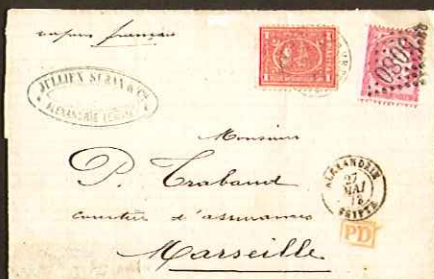 vapeur français
JULLIEN SUZAN & Cie
ALEXANDRIE
1 1
5080
Monsieur
P. Trabaud
courtier d'assurances
Marseille
ALEXANDRIE
27
MAI
73
EGYPTE
PD